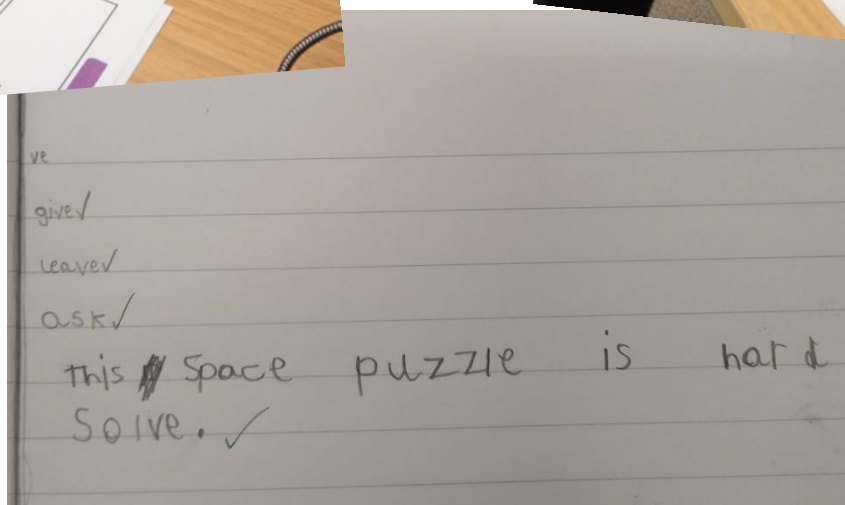 ve
give✓
leave✓
ask✓
This space puzzle is hard
Solve. ✓